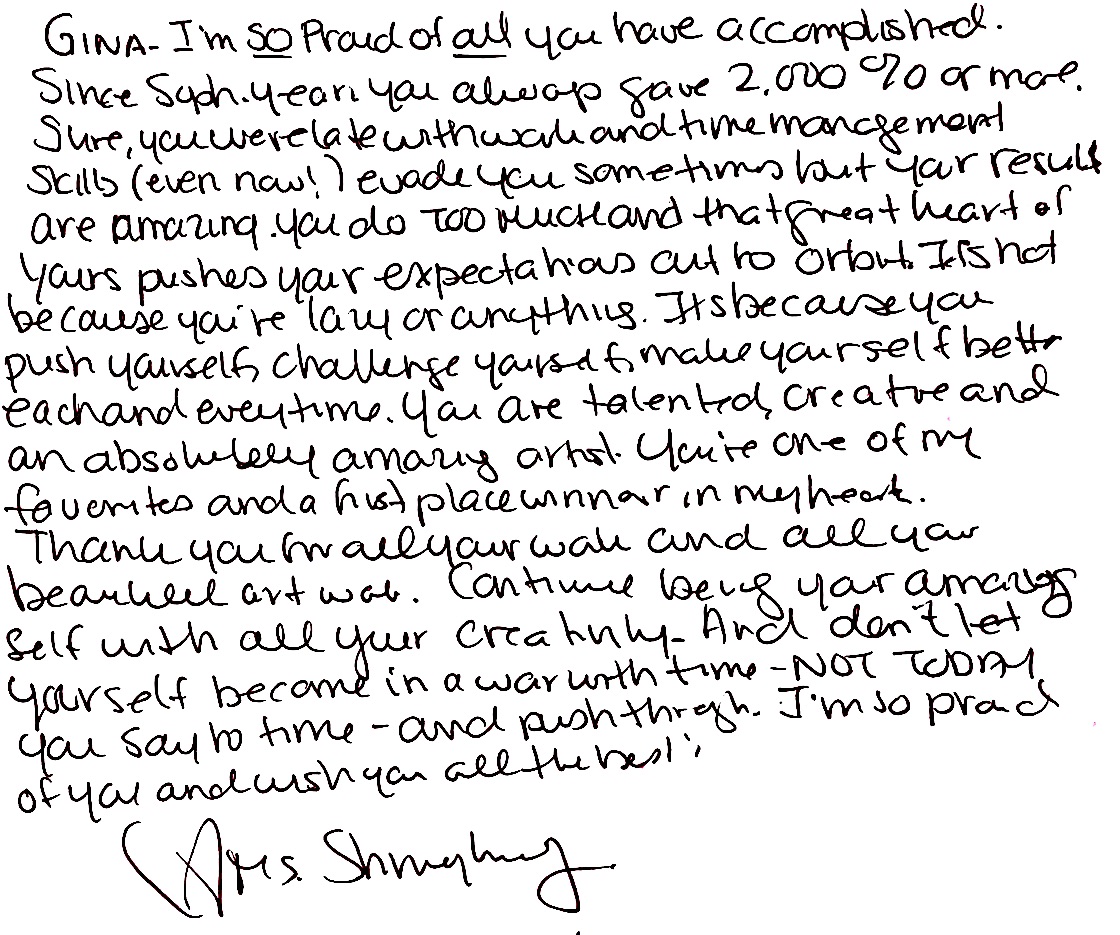 GINA- I'm so Proud of all you have accomplished.
Since Soph. year, you always gave 2,000 % or more.
Sure, you were late with work and time management
skills (even now!) evade you sometimes but your result
are amazing. You do TOO MUCH and that great heart of
yours pushes your expectations out to orbit. It's not
because you're lazy or anything. Its because you
push yourself, challenge yourself, make yourself better
each and every time. You are talented, creative and
an absolutely amazing artist. You're one of my
favorites and a first place winner in my heart.
Thank you for all your work and all your
beautiful art work. Continue being your amazing
self with all your creativity- And don't let
yourself become in a war with time - NOT TODAY
you say to time - and push through. I'm so proud
of you and wish you all the best!
Ms.